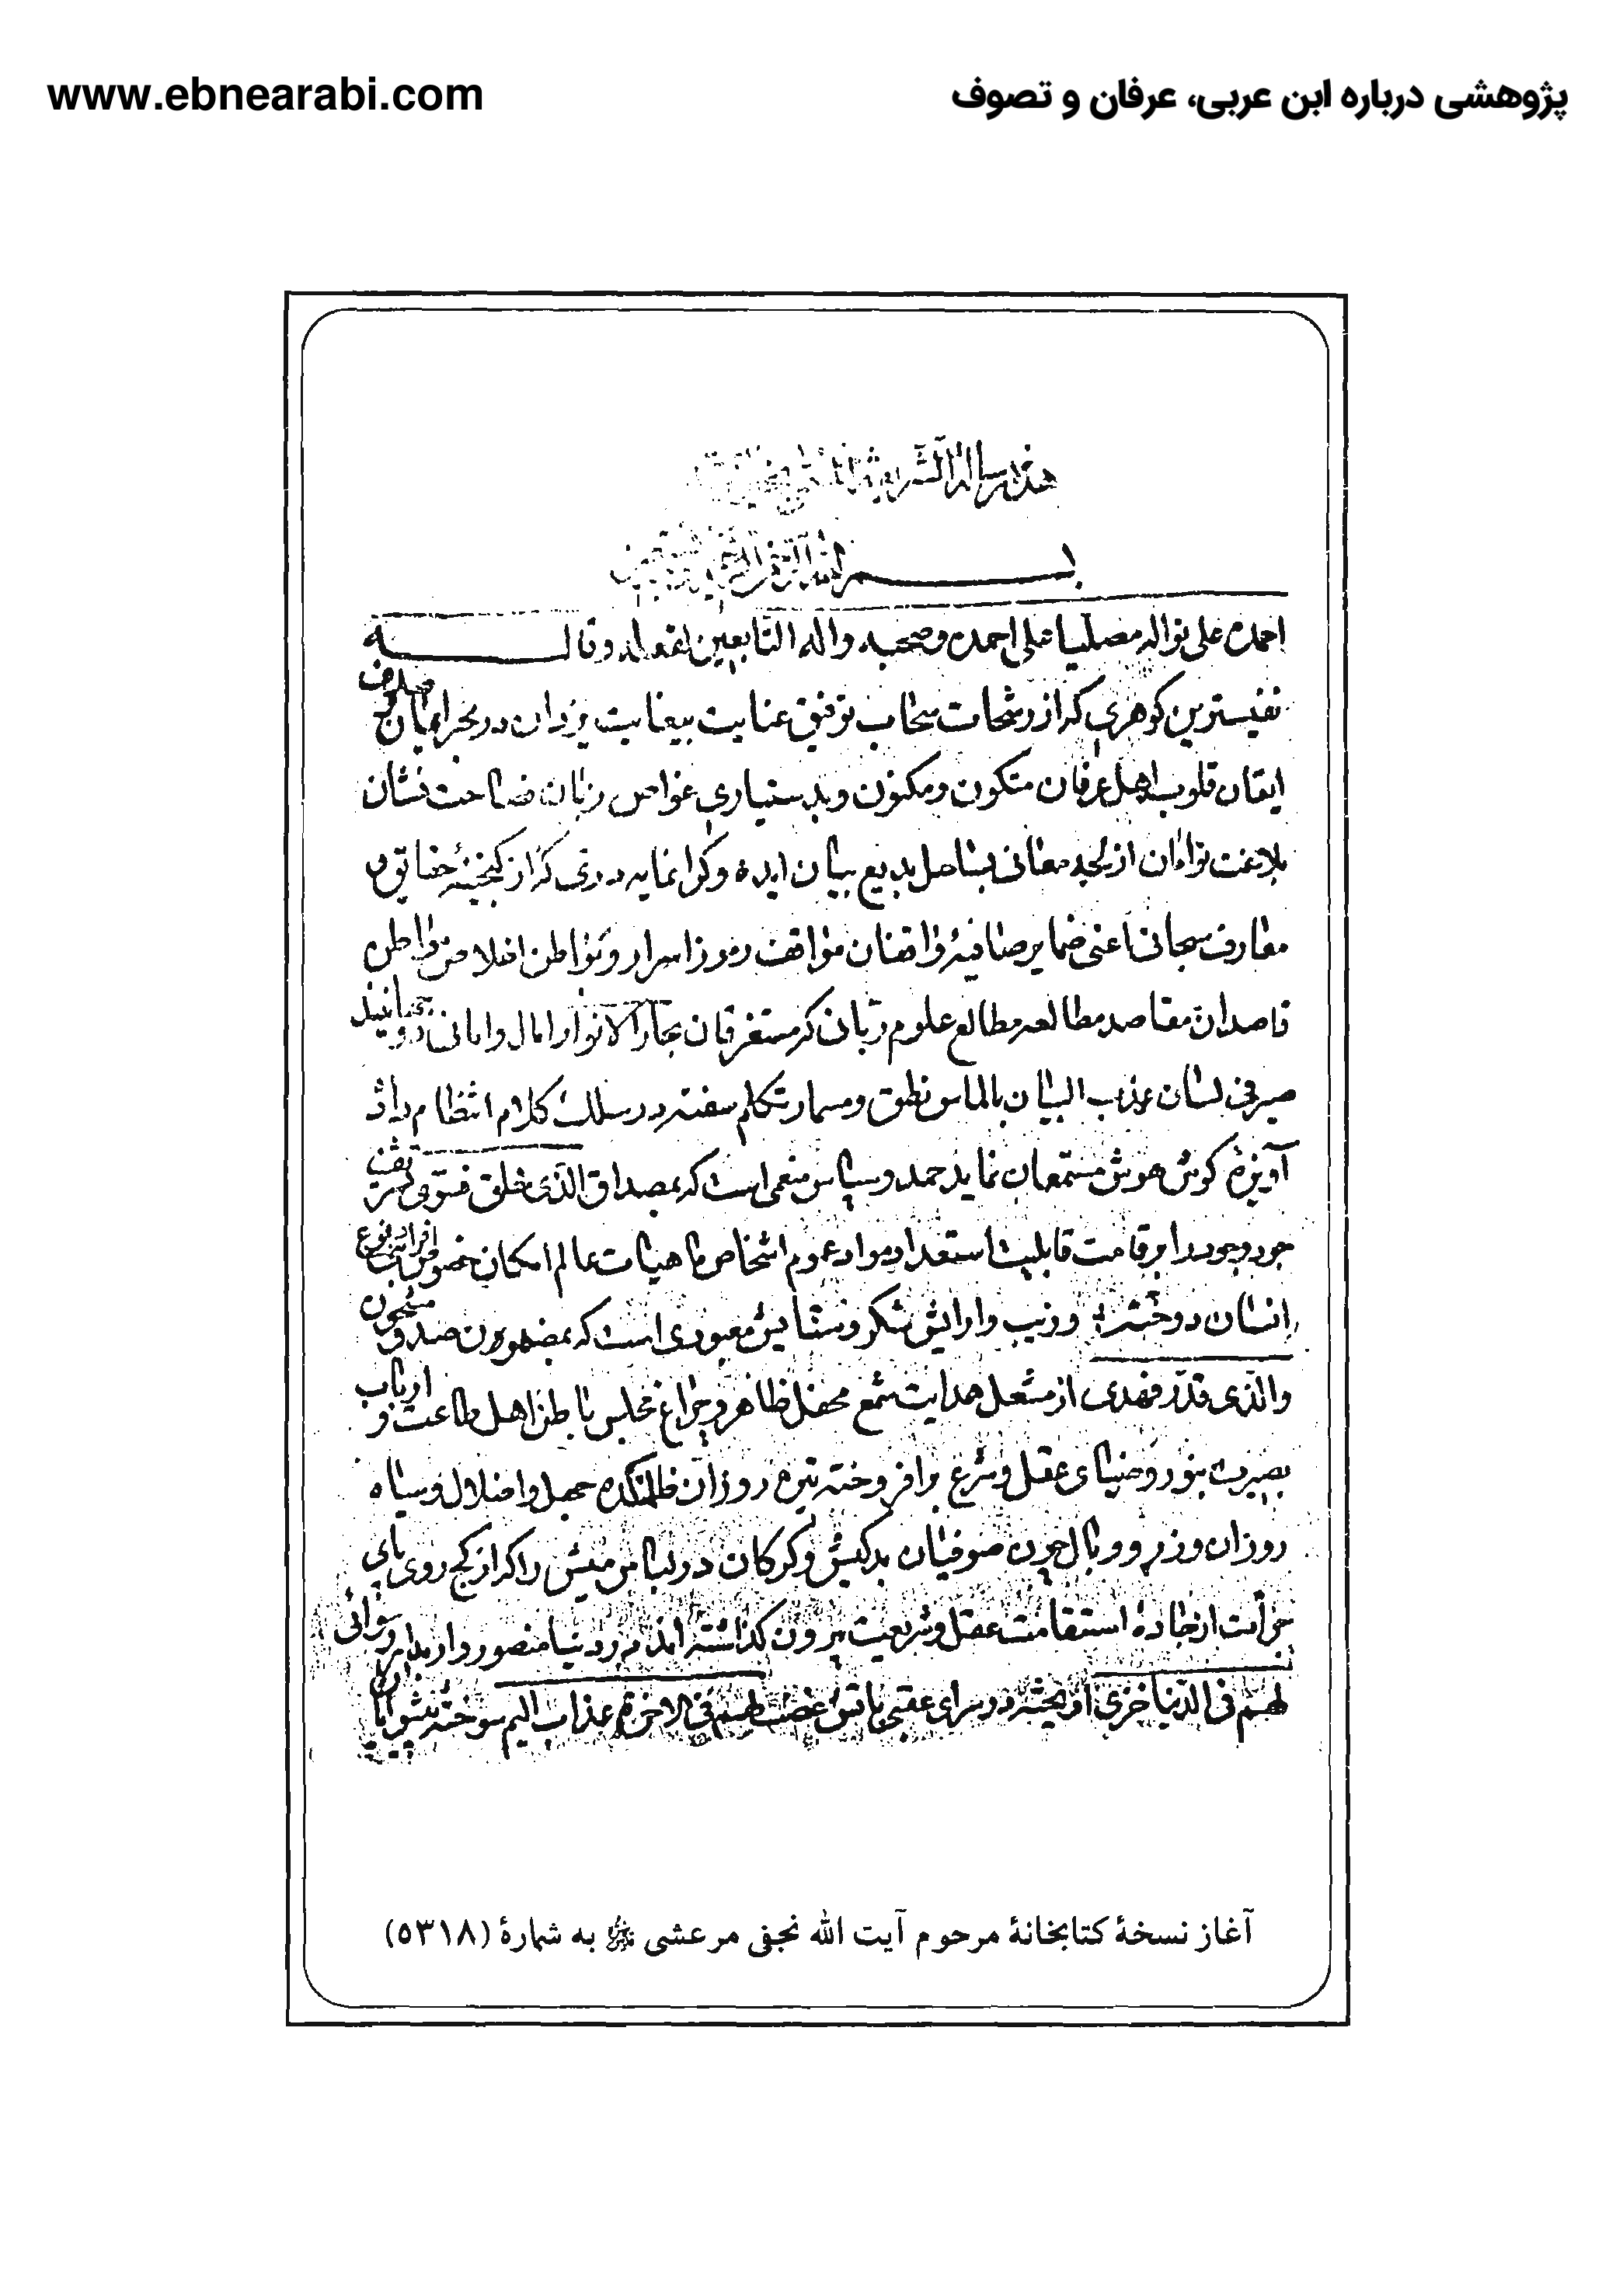 www.ebnearabi.com
پژوهشی درباره ابن عربی، عرفان و تصوف
هذه رسالة الشريفة
بسم الله الرحمن الرحيم
احمده علی نواله مصلیا علی احمده و صحبه و اله التابعین لفعاله و قاله
نفیسترین کوهری که از رشحات سحاب توفیق عنایت بیغایت یزدان در بحر ایمان صدف
ایقان قلوب اهل عرفان متکون و مکنون و بدستیاری غواص زبان فصاحت نشان
بلاغت توامان از لجه معانی بساحل بدیع بیان ایده و کرانمایه دری که از کنجینه حقایق و
معارف سبحانی اعنی ضمایر صافیه واقفان مواقف رموز اسرار و مواطن اخلاص
قاصدان مقاصد مطالعه مطالع علوم ربانی که مستغرقان بحار الانوار امال و امانی
صیرفی لسان عذب البیان بالماس نطق و مسمار تکلم سفته در سلک کلام انتظام داد
آویزهٔ کوش هوش مستمعان نماید حمد و سپاس منعمی است که بمصداق الذی خلق فسوی
جود وجود را بر قامت قابلیت استعداد مواد عموم اشخاص ماهیات عالم امکان خصوص افراد نوع
انسان دوخته و زیب و ارایش شکر و ستایش معبودی است که بمضمون صدق مشحون
والذی قدر فهدی از مشعل هدایت شمع محفل ظاهر و چراغ مجلس باطن اهل طاعت و ارباب
بصیرت بنور و ضیای عقل و شرع برافروخته تیره روزان ظلمتکده جهل و اضلال و سیاه
روزان وزر و وبال چون صوفیان بدکیش و کرکان در لباس میش را که از کج روی پای
جرأت از جادهٔ استقامت عقل و شریعت بیرون کذاشته اند در دنیا منصور وار بدار رسوائی
لهم فی الدنیا خزی اویخته در سرای عقبی باتش غضب لهم فی الاخرة عذاب الیم سوخته
آغاز نسخهٔ کتابخانهٔ مرحوم آیت الله نجفی مرعشی به شمارهٔ (۵۳۱۸)